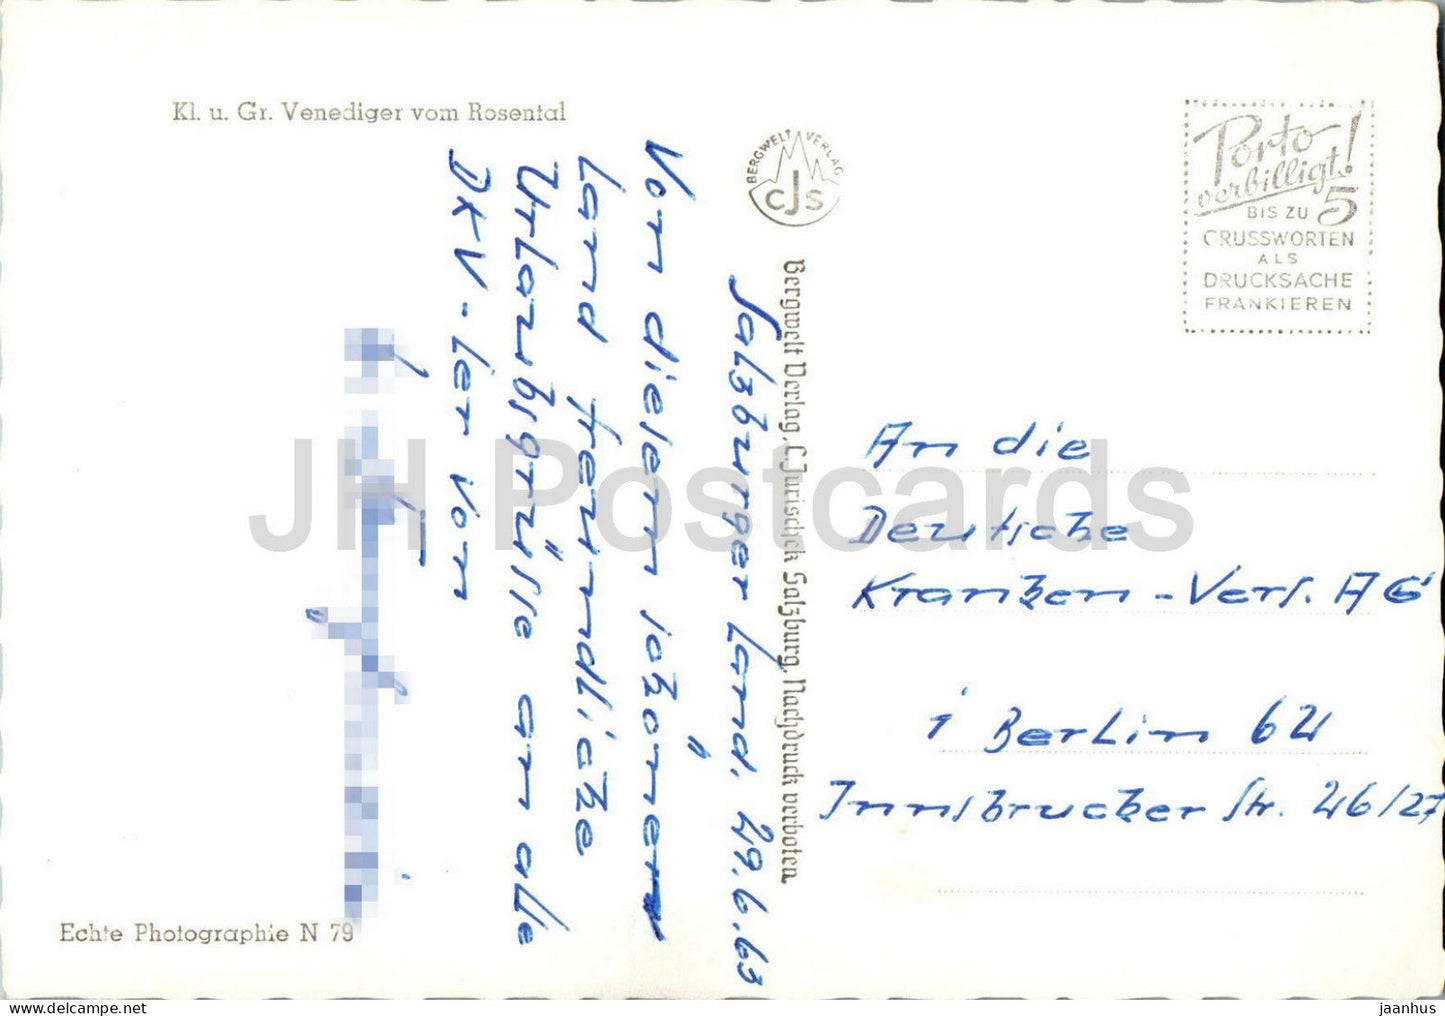 Kl. u. Gr. Venediger vom Rosental
BERGWELT VERLAG
CJS
Porto
verbilligt!
BIS ZU 5
GRUSSWORTEN
ALS
DRUCKSACHE
FRANKIEREN
Salzburger Land, 29.6.63
Von diesem schönen
Land freundliche
Urlaubsgrüsse an alle
DKV-ler von
Bergwelt Verlag, C. Jurischek Salzburg, Nachdruck verboten.
An die
Deutsche
Kranken-Vers. AG
1 Berlin 62
Innsbrucker Str. 26/27
Echte Photographie N 79
JH Postcards
www.delcampe.net
jaanhus